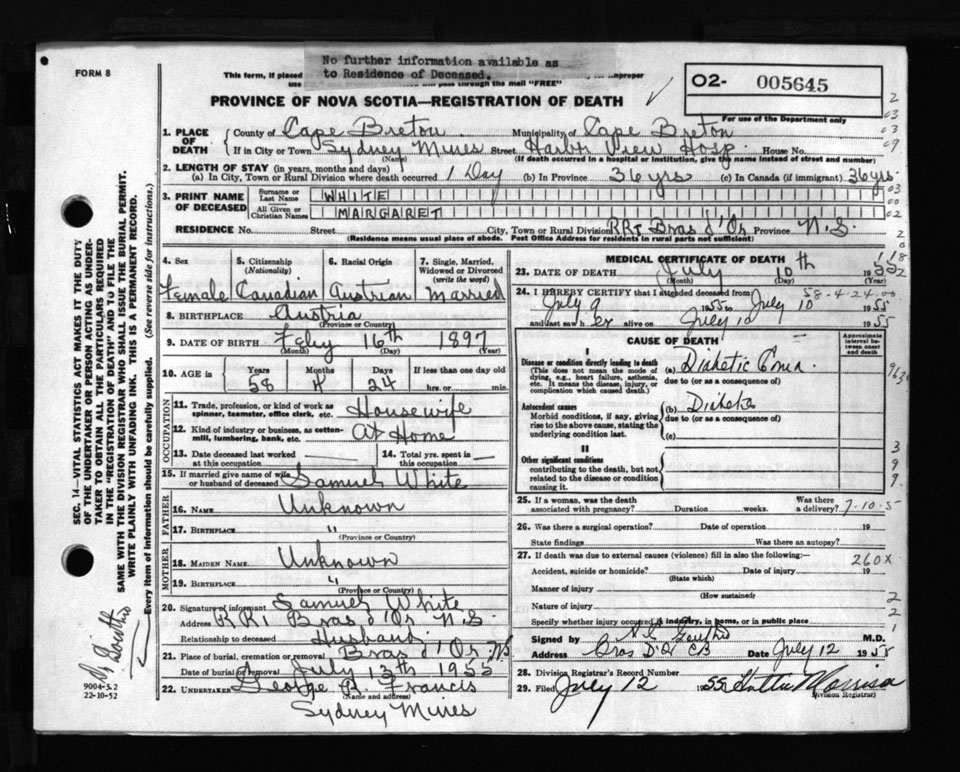 No further information available as
to Residence of Deceased.
FORM 8
This form, if placed
improper
use
will pass through the mail "FREE"
02- 005645
For use of the Department only
PROVINCE OF NOVA SCOTIA—REGISTRATION OF DEATH
1. PLACE OF DEATH
County of Cape Breton Municipality of Cape Breton
If in City or Town Sydney Mines Street Harbor View Hosp. House No.
(Name) (If death occurred in a hospital or institution, give the name instead of street and number)
2. LENGTH OF STAY (in years, months and days)
(a) In City, Town or Rural Division where death occurred 1 Day (b) In Province 36 yrs (c) In Canada (if immigrant) 36 yrs.
3. PRINT NAME OF DECEASED
Surname or Last Name WHITE
All Given or Christian Names MARGARET
RESIDENCE No. Street City, Town or Rural Division RR1 Bras d'Or Province N.S.
(Residence means usual place of abode. Post Office Address for residents in rural parts not sufficient)
4. Sex 5. Citizenship (Nationality) 6. Racial Origin 7. Single, Married, Widowed or Divorced (write the word)
Female Canadian Austrian Married
8. BIRTHPLACE Austria
(Province or Country)
9. DATE OF BIRTH Feby 16th 1897
(Month) (Day) (Year)
10. AGE in Years Months Days If less than one day
58 4 24 hrs. or min.
OCCUPATION
11. Trade, profession, or kind of work as spinner, teamster, office clerk, etc. Housewife
12. Kind of industry or business, as cotton-mill, lumbering, bank, etc. At Home
13. Date deceased last worked at this occupation — 14. Total yrs. spent in this occupation —
15. If married give name of wife or husband of deceased Samuel White
FATHER
16. NAME Unknown
17. BIRTHPLACE "
(Province or Country)
MOTHER
18. MAIDEN NAME Unknown
19. BIRTHPLACE "
(Province or Country)
20. Signature of informant Samuel White
Address RR1 Bras d'Or N.S.
Relationship to deceased Husband.
21. Place of burial, cremation or removal Bras d'Or N.S.
Date of burial or removal July 13th 1955
22. UNDERTAKER George R. Francis
(Name and address)
Sydney Mines
MEDICAL CERTIFICATE OF DEATH
23. DATE OF DEATH July 10th 1955
(Month) (Day) (Year)
58-4-24-00
24. I HEREBY CERTIFY that I attended deceased from
July 9 1955 to July 10 1955
and last saw her alive on July 10 1955
CAUSE OF DEATH
Approximate interval between onset and death
I
Disease or condition directly leading to death (a) Diabetic Coma
(This does not mean the mode of dying, e.g., heart failure, asthenia, etc. It means the disease, injury, or complication which caused death.)
due to (or as a consequence of)
Antecedent causes (b) Diabetes
Morbid conditions, if any, giving rise to the above cause, stating the underlying condition last.
due to (or as a consequence of)
(c)
II
Other significant conditions contributing to the death, but not related to the disease or condition causing it.
25. If a woman, was the death associated with pregnancy? Duration weeks. Was there a delivery? 7-10-5
26. Was there a surgical operation? Date of operation 19
State findings Was there an autopsy?
27. If death was due to external causes (violence) fill in also the following:—
260X
Accident, suicide or homicide? Date of injury 19
(State which)
Manner of injury
(How sustained)
Nature of injury
Specify whether injury occurred in industry, in home, or in public place
Signed by M.D.
Address Bras D'Or CB Date July 12 1955
28. Division Registrar's Record Number
29. Filed July 12 1955
(Division Registrar)
SEC. 14—VITAL STATISTICS ACT MAKES IT THE DUTY
OF THE UNDERTAKER OR PERSON ACTING AS UNDER-
TAKER TO OBTAIN ALL THE PARTICULARS REQUIRED
IN THE "REGISTRATION OF DEATH" AND TO FILE THE
SAME WITH THE DIVISION REGISTRAR WHO SHALL ISSUE THE BURIAL PERMIT.
WRITE PLAINLY WITH UNFADING INK. THIS IS A PERMANENT RECORD.
Every item of information should be carefully supplied. (See reverse side for instructions.)
9004-3.2
22-10-52